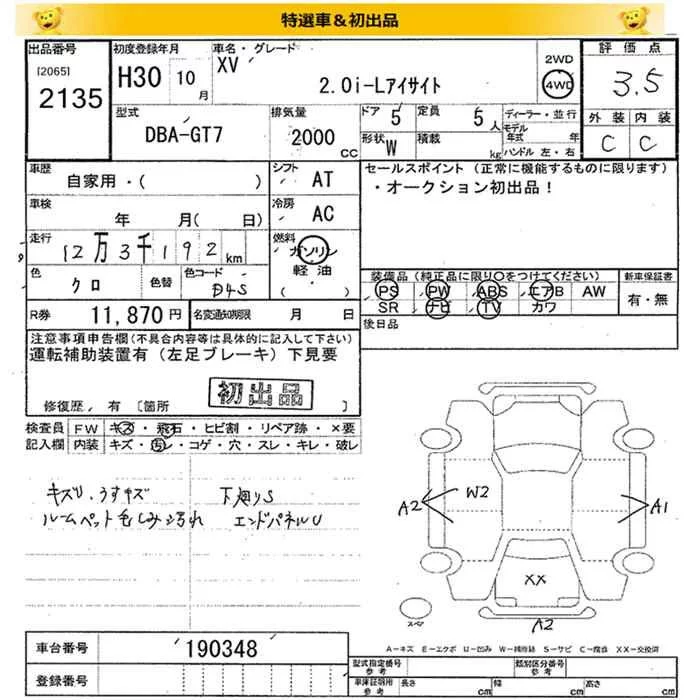 特選車＆初出品
出品番号 初度登録年月 車名・グレード 評価点
[2065] H30 10月 XV 2WD 3.5
2135 2.0i-Lアイサイト 4WD
型式 排気量 ドア 5 定員 5人 ディーラー・並行 外装 内装
DBA-GT7 2000 CC 形状 W 積載 kg モデル年式 年 C C
ハンドル 左・右
車歴 シフト セールスポイント (正常に機能するものに限ります)
自家用・( ) AT ・オークション初出品！
車検 冷房
年 月( 日) AC
走行 燃料
12万3千192km ガソリン
軽油
色 色替 色コード ・( ) 装備品 (純正品に限り○をつけてください) 新車保証書
クロ D4S PS PW ABS エアB AW 有・無
R券 11,870円 名変通知期限 月 日 SR ナビ TV カワ
後日品
注意事項申告欄(不具合内容等は具体的に記入して下さい)
運転補助装置有 (左足ブレーキ) 下見要
初出品
修復歴, 有 [箇所 ]
検査員 FW キズ・飛石・ヒビ割・リペア跡・×要
記入欄 内装 キズ・汚レ・コゲ・穴・スレ・キレ・破レ
キズU.うすキズ 下廻りS
ルームペット毛しみ汚れ エンドパネルU
A2 W2 A1
XX
スペア A2
車台番号 190348
A−キズ E−エクボ U−凹み W−補修跡 S−サビ C−腐食 XX−交換済
登録番号
型式指定番号 参考 類別区分番号 参考
車庫証明用 参考 長さ cm 幅 cm 高さ cm